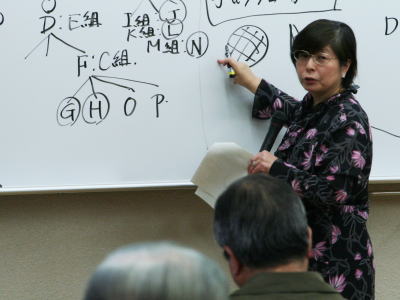 D:E組
F:C組.
G H O P
I組: J
K組: L
M組: N
D